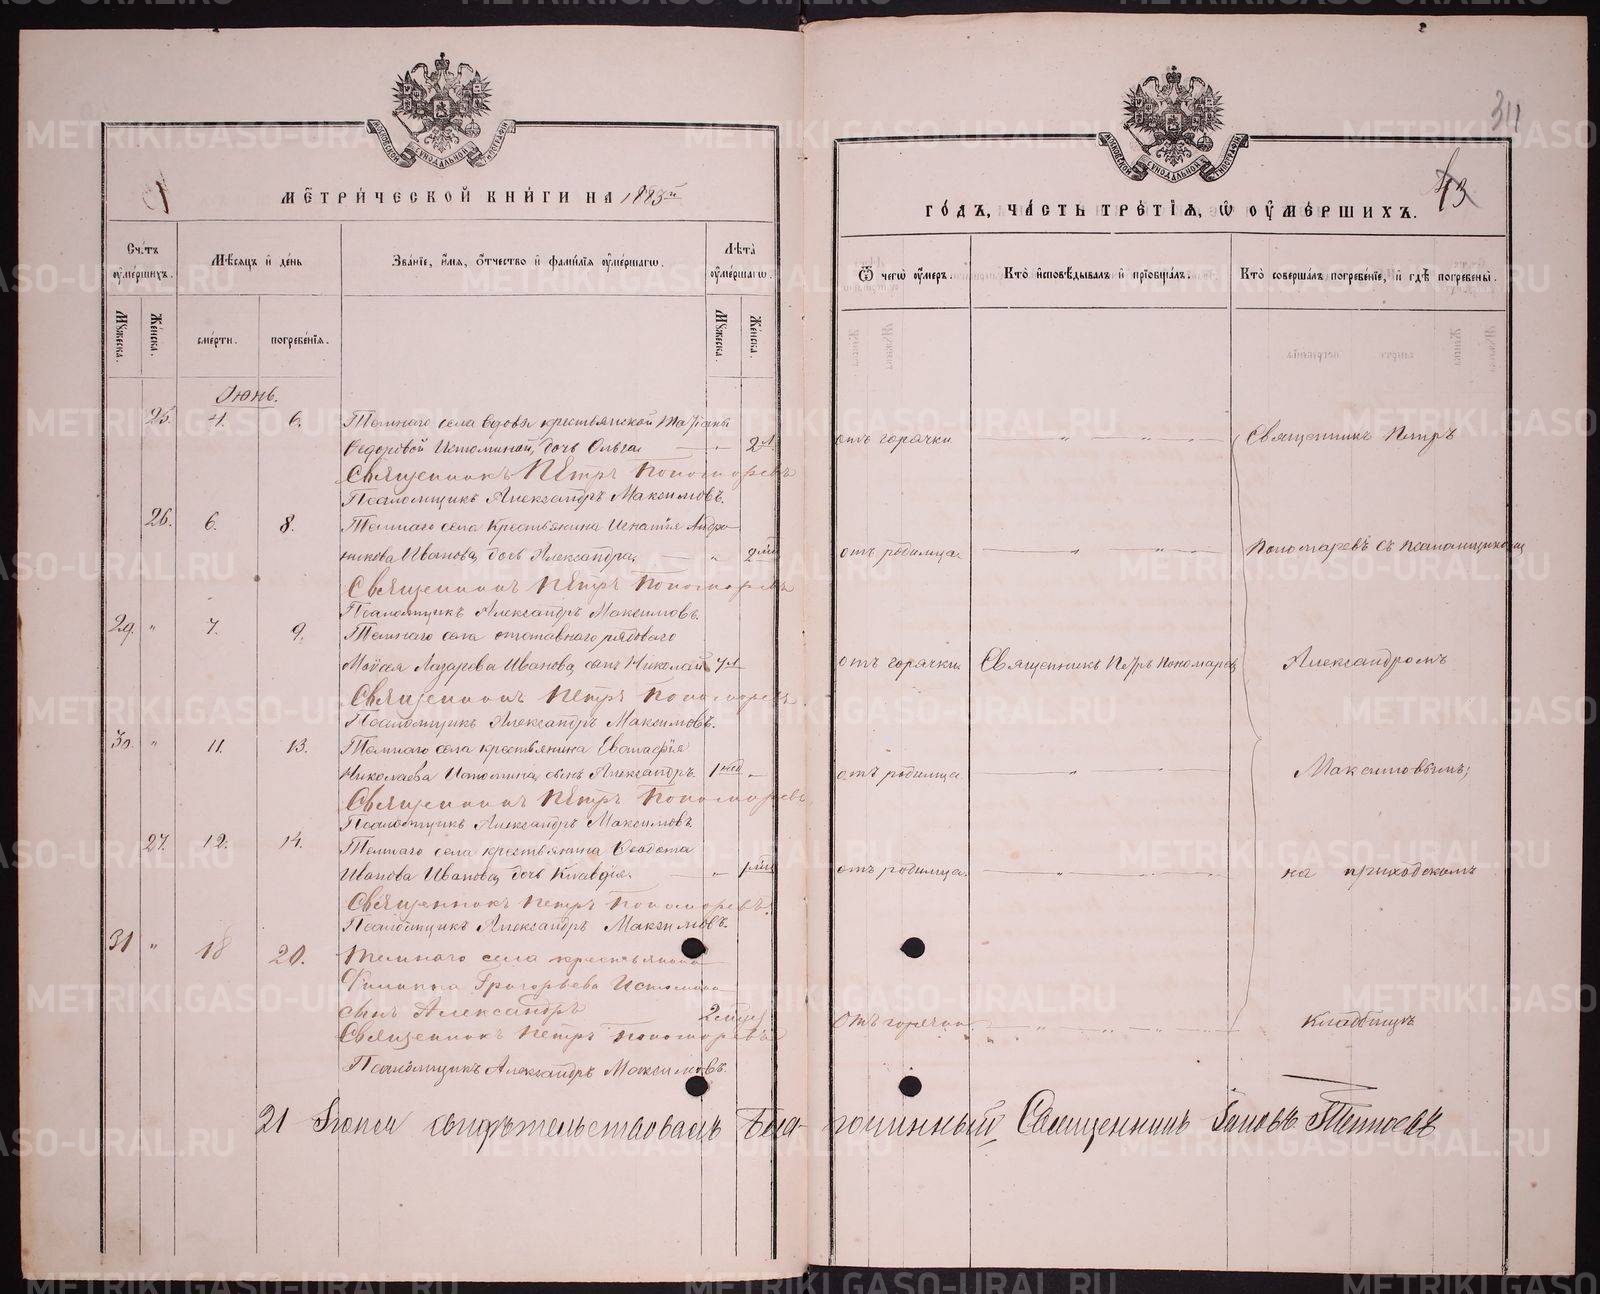 МОСКОВСКОЙ СѴНОДАЛЬНОЙ ТИПОГРАФІИ
МЕТРИЧЕСКОЙ КНИГИ НА 1885й
Счетъ оумершихъ.
Мѣсяцъ и день
Званіе, имя, отчество и фамилія оумершагѡ.
Лѣта оумершагѡ.
Мꙋжеска.
Женска.
смерти.
погребенія.
Мꙋжеска.
Женска.
Іюнь.
25. 4. 6. Темнаго села вдовы крестьянской Татіаны
Ѳедоровой Истоминой, дочь Ольга — „ — 2 л.
Священникъ Петръ Пономаревъ
Псаломщикъ Александръ Максимовъ.
26. 6. 8. Темнаго села Крестьянина Игнатія Андро-
никова Иванова, дочь Александра, — „ 2 мѣс
Священникъ Петръ Пономаревъ
Псаломщикъ Александръ Максимовъ.
29. „ 7. 9. Темнаго села отставнаго рядоваго
Моѵсея Лазарева Иванова, сынъ Николай
Священникъ Петръ Пономаревъ
Псаломщикъ Александръ Максимовъ.
30. „ 11. 13. Темнаго села крестьянина Евстафія
Николаева Истомина, сынъ Александръ. 1 нед „
Священникъ Петръ Пономаревъ
Псаломщикъ Александръ Максимовъ.
27. 12. 14. Темнаго села крестьянина Ѳеодота
Иванова Иванова, дочь Клавдія. — „ 1 мѣс
Священникъ Петръ Пономаревъ.
Псаломщикъ Александръ Максимовъ.
31 „ 18 20. Темнаго села крестьянина
Филиппа Григорьева Истомина
сынъ Александръ
Священникъ Петръ Пономаревъ
Псаломщикъ Александръ Максимовъ.
21 Іюля свидѣтельствовалъ Благочинный, Священникъ Іаковъ
311
МОСКОВСКОЙ СѴНОДАЛЬНОЙ ТИПОГРАФІИ
43
ГОДЪ, ЧАСТЬ ТРЕТІЯ, Ѡ ОУМЕРШИХЪ.
Ѿ чегѡ оумеръ.
Кто исповѣдывалъ и пріобщалъ.
Кто совершалъ погребеніе, и гдѣ погребены.
отъ горячки — „ — „ — Священникъ Петръ
отъ родимца. — „ — „ — Пономаревъ съ псаломщикомъ
отъ горячки. Священникъ Петръ Пономаревъ Александромъ
отъ родимца — „ — „ — Максимовымъ,
отъ родимца. — „ — „ — на приходскомъ
Отъ горячки — „ — „ — кладбищѣ
METRIKI.GASO-URAL.RU